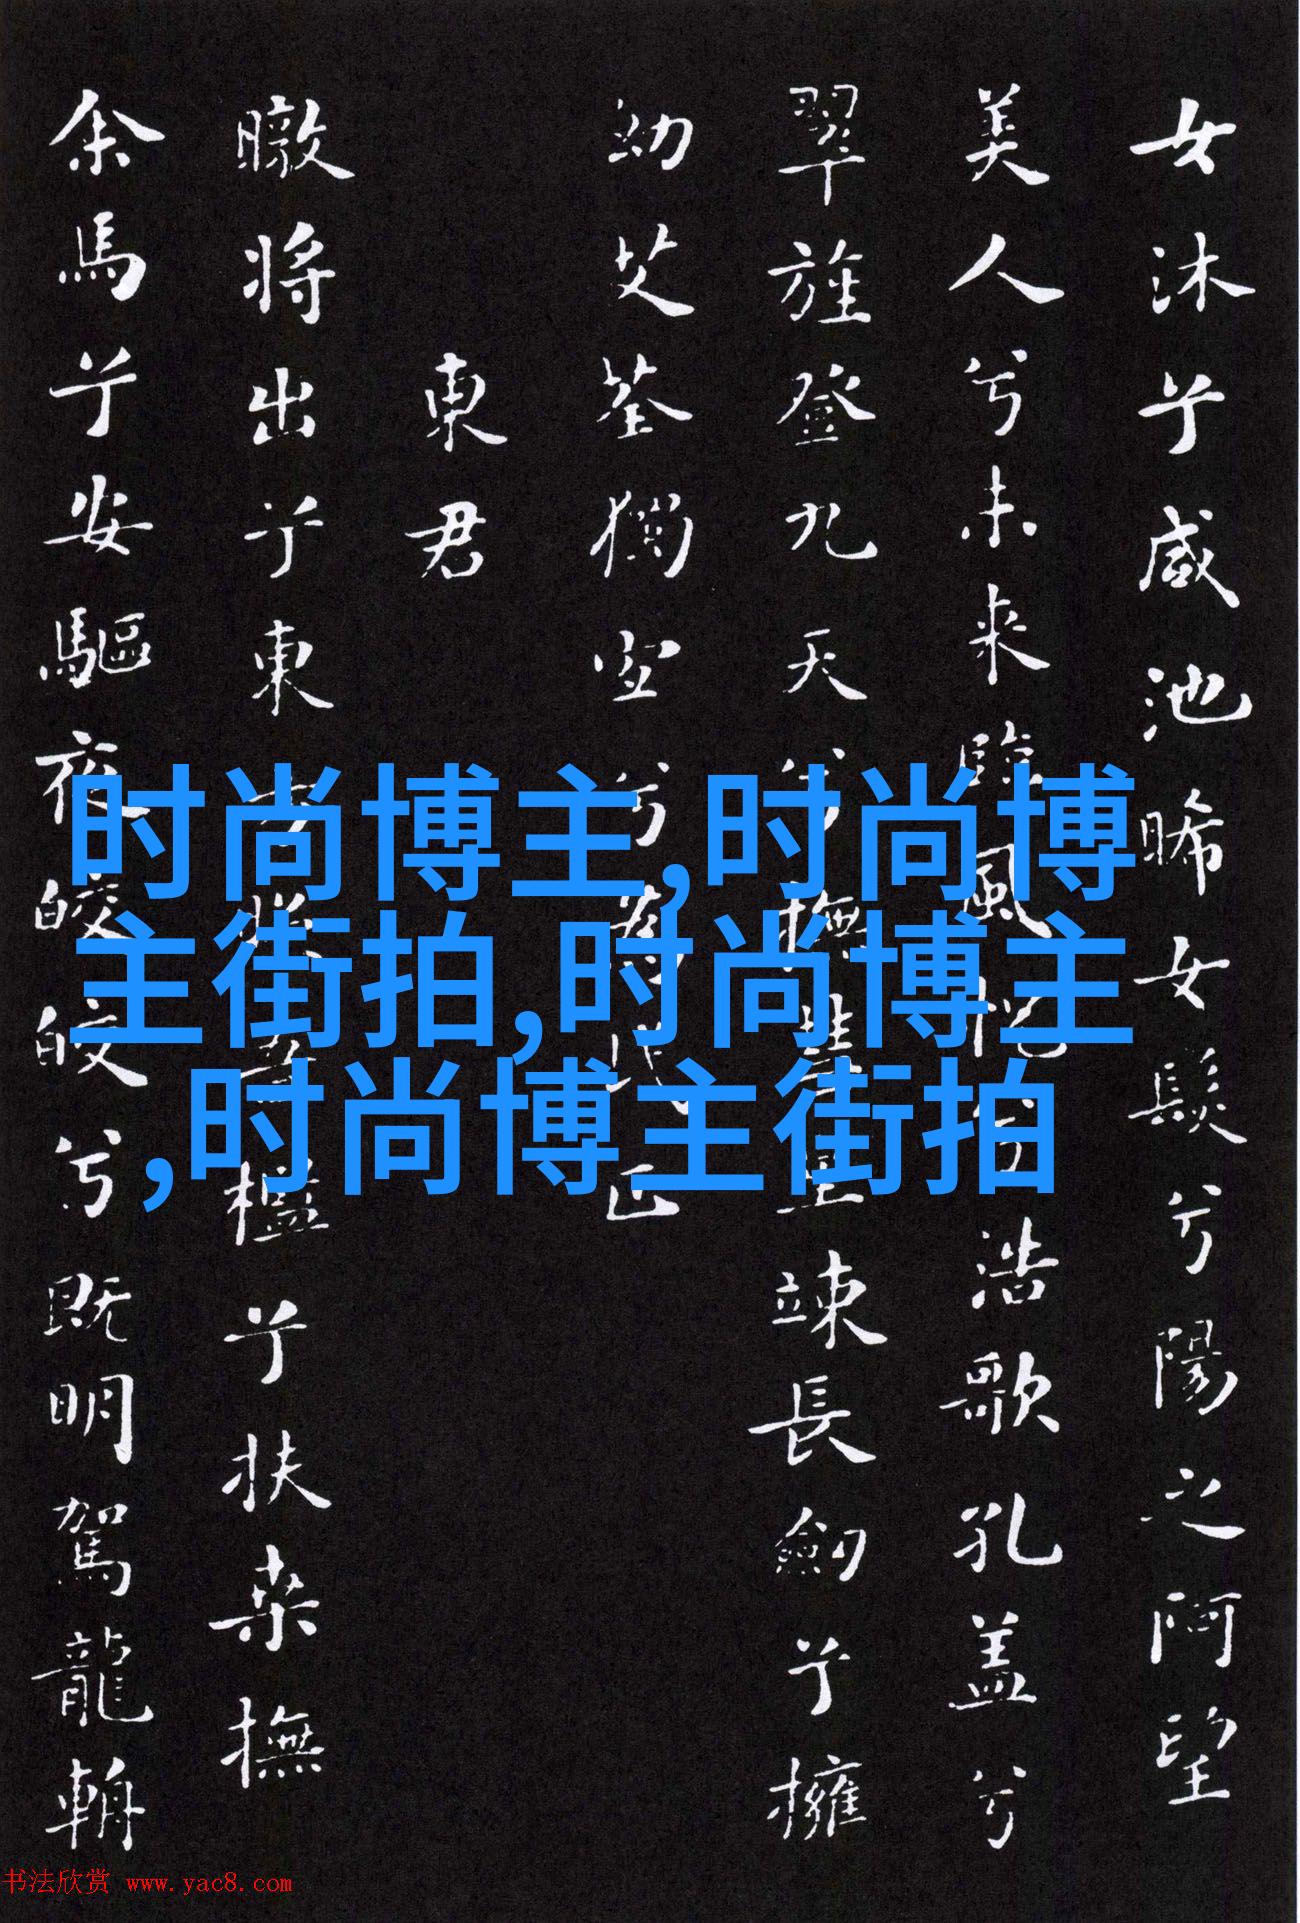 女沐兮咸池晞女髮兮陽之阿望
美人兮未来臨風怳兮浩歌孔盖兮
翠旌登九天兮撫彗星竦長劍兮擁
幼艾荃獨宜兮為民正
東君
暾将出兮東方照吾檻兮扶桑撫
余馬兮安驅夜皎皎兮既明駕龍輈
时尚博主,时尚博
主街拍,时尚博主
,时尚博主街拍
书法欣赏 www.yac8.com